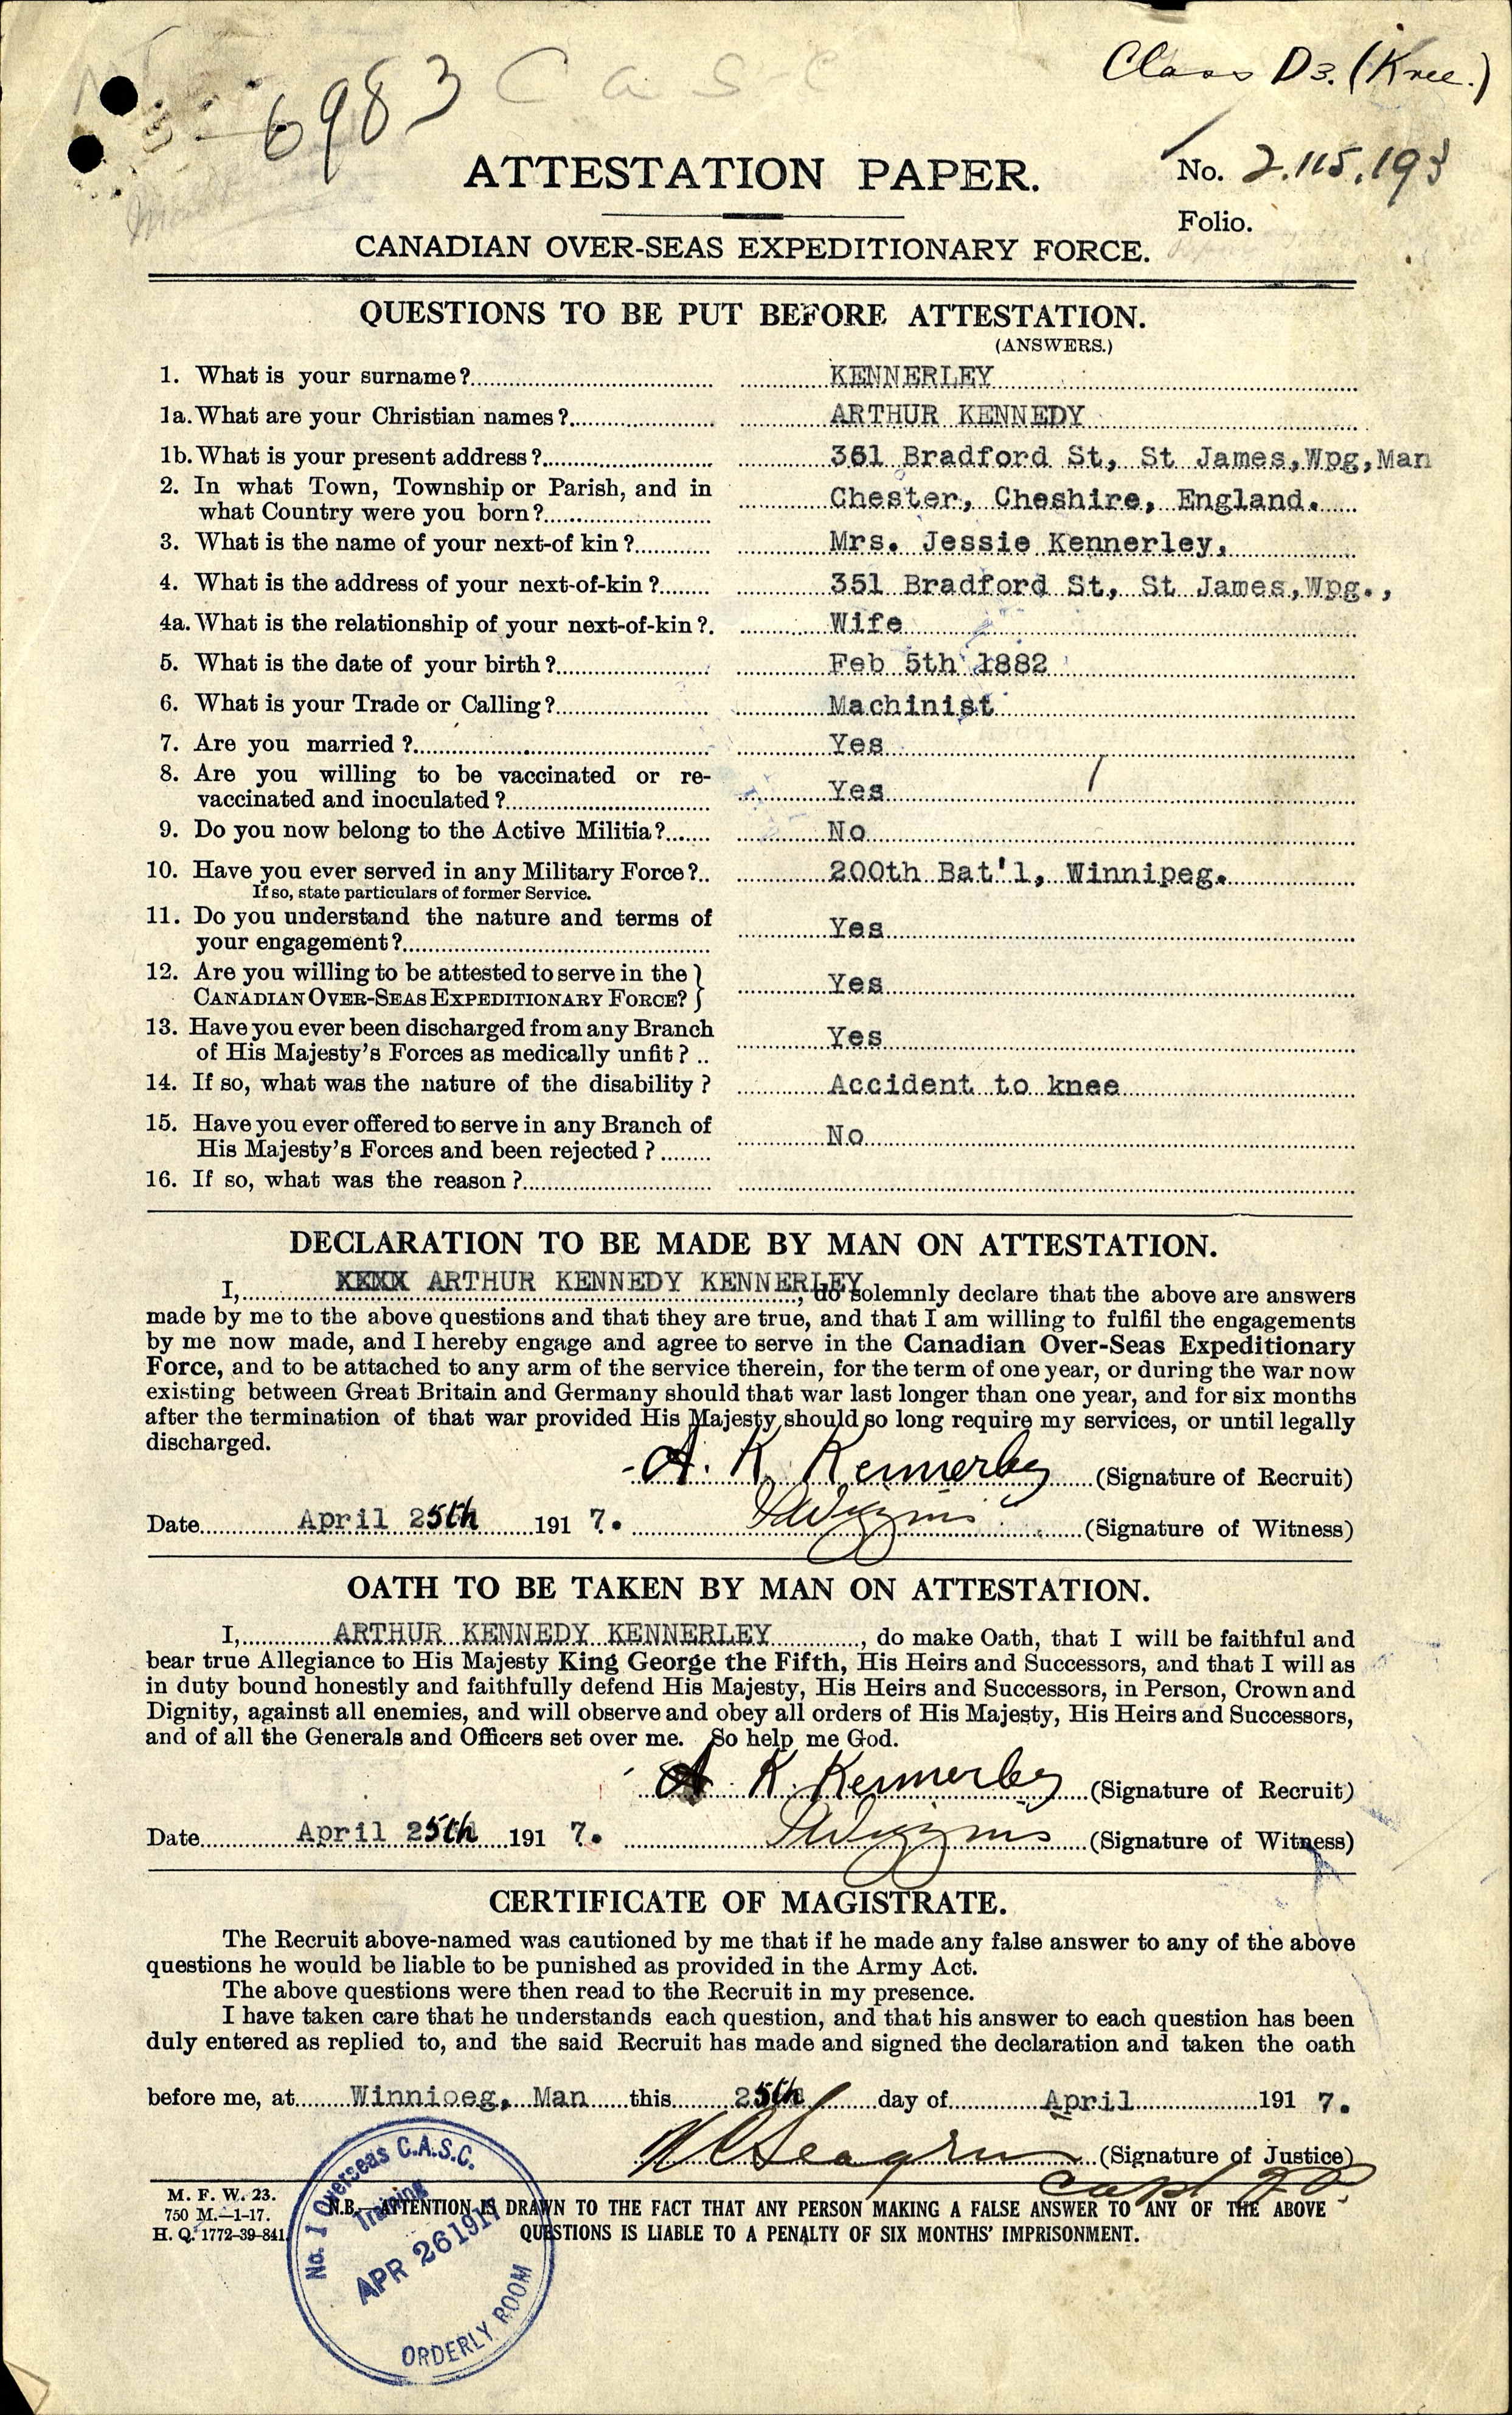 6983 C a s c
Class D3. (Knee.)
ATTESTATION PAPER.
No. 2.115.193
Folio.
CANADIAN OVER-SEAS EXPEDITIONARY FORCE.
QUESTIONS TO BE PUT BEFORE ATTESTATION.
(ANSWERS.)
1. What is your surname? KENNERLEY
1a. What are your Christian names? ARTHUR KENNEDY
1b. What is your present address? 351 Bradford St, St James, Wpg, Man
2. In what Town, Township or Parish, and in
what Country were you born? Chester, Cheshire, England.
3. What is the name of your next-of kin? Mrs. Jessie Kennerley,
4. What is the address of your next-of-kin? 351 Bradford St, St James, Wpg.,
4a. What is the relationship of your next-of-kin? Wife
5. What is the date of your birth? Feb 5th 1882
6. What is your Trade or Calling? Machinist
7. Are you married? Yes
8. Are you willing to be vaccinated or re-
vaccinated and inoculated? Yes
9. Do you now belong to the Active Militia? No
10. Have you ever served in any Military Force? 200th Bat'l, Winnipeg.
If so, state particulars of former Service.
11. Do you understand the nature and terms of
your engagement? Yes
12. Are you willing to be attested to serve in the
CANADIAN OVER-SEAS EXPEDITIONARY FORCE? Yes
13. Have you ever been discharged from any Branch
of His Majesty's Forces as medically unfit? Yes
14. If so, what was the nature of the disability? Accident to knee
15. Have you ever offered to serve in any Branch of
His Majesty's Forces and been rejected? No
16. If so, what was the reason?
DECLARATION TO BE MADE BY MAN ON ATTESTATION.
I, XXXX ARTHUR KENNEDY KENNERLEY, do solemnly declare that the above are answers
made by me to the above questions and that they are true, and that I am willing to fulfil the engagements
by me now made, and I hereby engage and agree to serve in the Canadian Over-Seas Expeditionary
Force, and to be attached to any arm of the service therein, for the term of one year, or during the war now
existing between Great Britain and Germany should that war last longer than one year, and for six months
after the termination of that war provided His Majesty should so long require my services, or until legally
discharged.
A. K. Kennerley (Signature of Recruit)
Date April 25th 1917. Wiggins (Signature of Witness)
OATH TO BE TAKEN BY MAN ON ATTESTATION.
I, ARTHUR KENNEDY KENNERLEY, do make Oath, that I will be faithful and
bear true Allegiance to His Majesty King George the Fifth, His Heirs and Successors, and that I will as
in duty bound honestly and faithfully defend His Majesty, His Heirs and Successors, in Person, Crown and
Dignity, against all enemies, and will observe and obey all orders of His Majesty, His Heirs and Successors,
and of all the Generals and Officers set over me. So help me God.
A K. Kennerley (Signature of Recruit)
Date April 25th 1917. Wiggins (Signature of Witness)
CERTIFICATE OF MAGISTRATE.
The Recruit above-named was cautioned by me that if he made any false answer to any of the above
questions he would be liable to be punished as provided in the Army Act.
The above questions were then read to the Recruit in my presence.
I have taken care that he understands each question, and that his answer to each question has been
duly entered as replied to, and the said Recruit has made and signed the declaration and taken the oath
before me, at Winnioeg, Man this 25th day of April 1917.
(Signature of Justice)
Capt
M. F. W. 23.
750 M.—1-17.
H. Q. 1772-39-841.
N.B.—ATTENTION IS DRAWN TO THE FACT THAT ANY PERSON MAKING A FALSE ANSWER TO ANY OF THE ABOVE
QUESTIONS IS LIABLE TO A PENALTY OF SIX MONTHS' IMPRISONMENT.
No. 1 Overseas C.A.S.C.
Training
APR 26 1917
ORDERLY ROOM